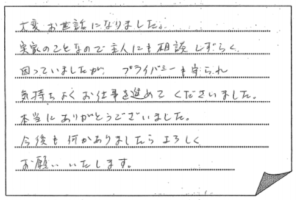 大変お世話になりました。
実家のことなので主人にも相談しずらく
困っていましたが、プライバシーも守られ
気持ちよくお仕事を進めてくださいました。
本当にありがとうございました。
今後も何かありましたらよろしく
お願いいたします。